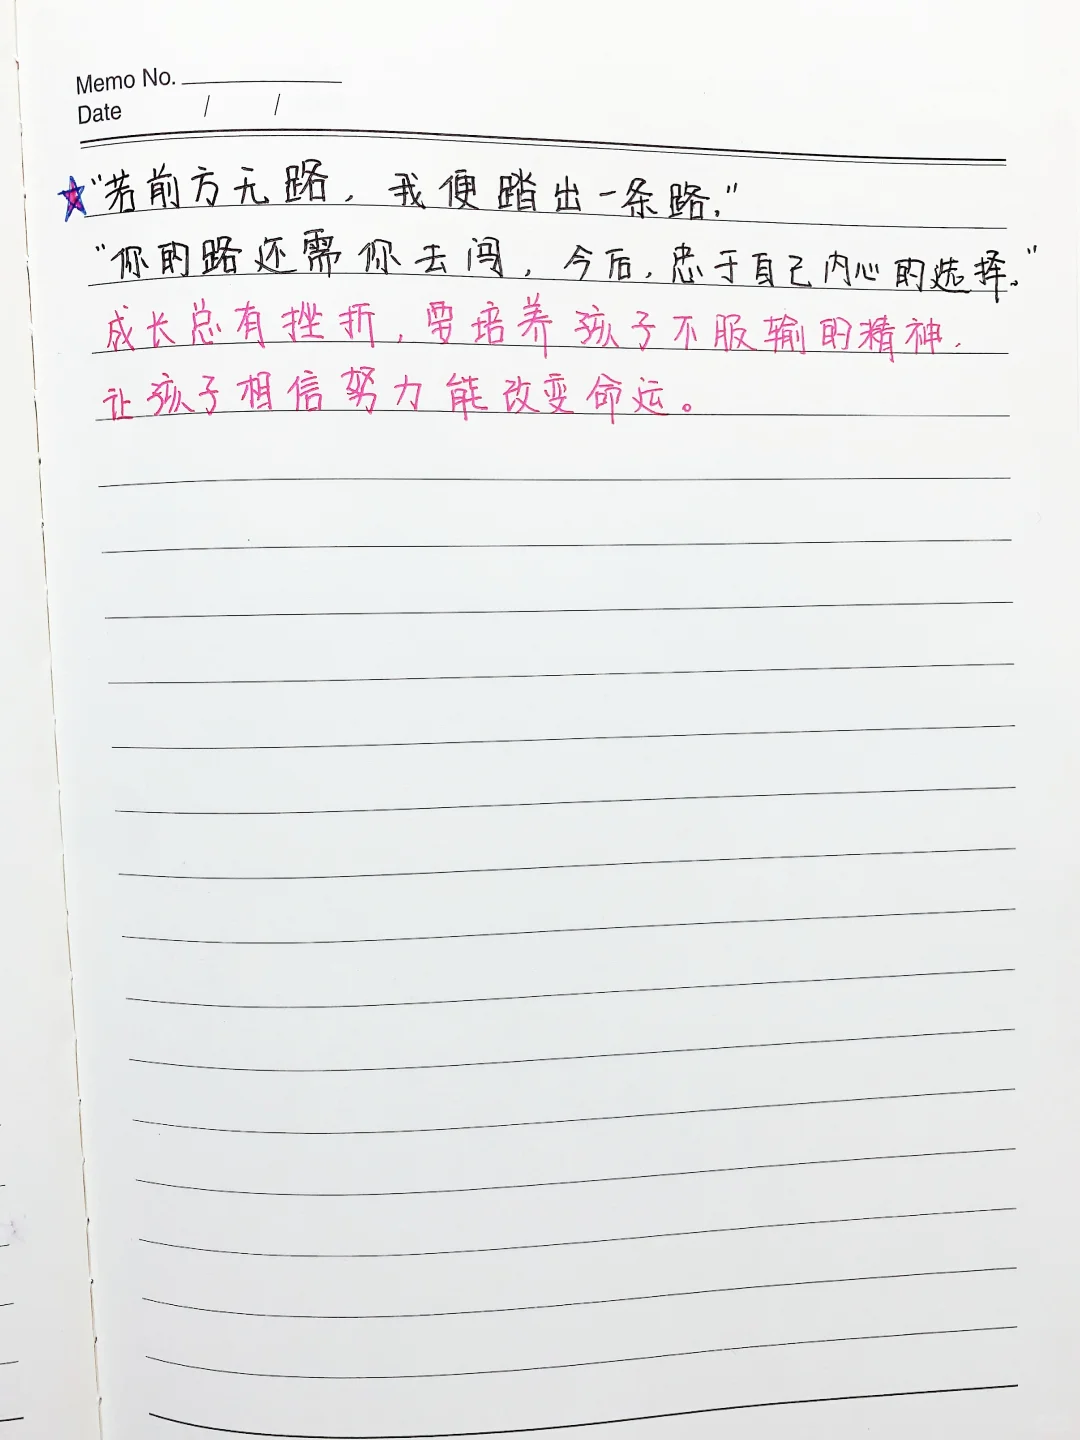 Memo No.
Date / /
"若前方无路，我便踏出一条路."
"你的路还需你去闯，今后，忠于自己内心的选择。"
成长总有挫折，要培养孩子不服输的精神.
让孩子相信努力能改变命运。